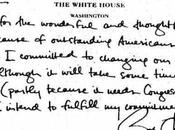 THE WHITE HOUSE
WASHINGTON
for the wonderful and thought
cause of outstanding Americans
I committed to changing our
although it will take some time
(partly because it needs Congress
I intend to fulfill my commitme